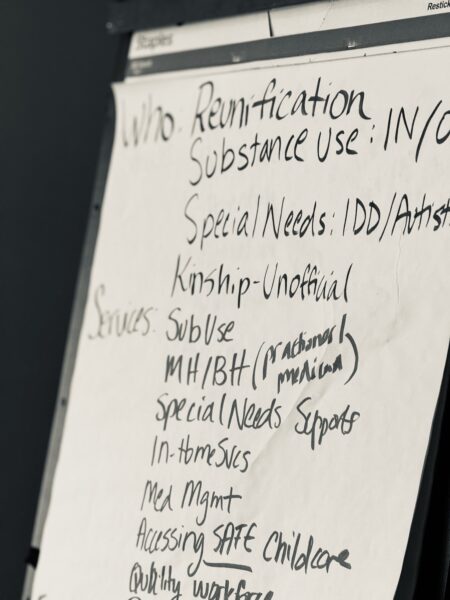 Restick
Staples
Who: Reunification
Substance Use: IN/O
Special Needs: IDD/Autist
Kinship-Unofficial
Services: Sub Use
MH/BH (practioner/
medicaid)
Special Needs Supports
In-Home Svcs
Med Mgmt
Accessing SAFE Childcare
Quality workforce